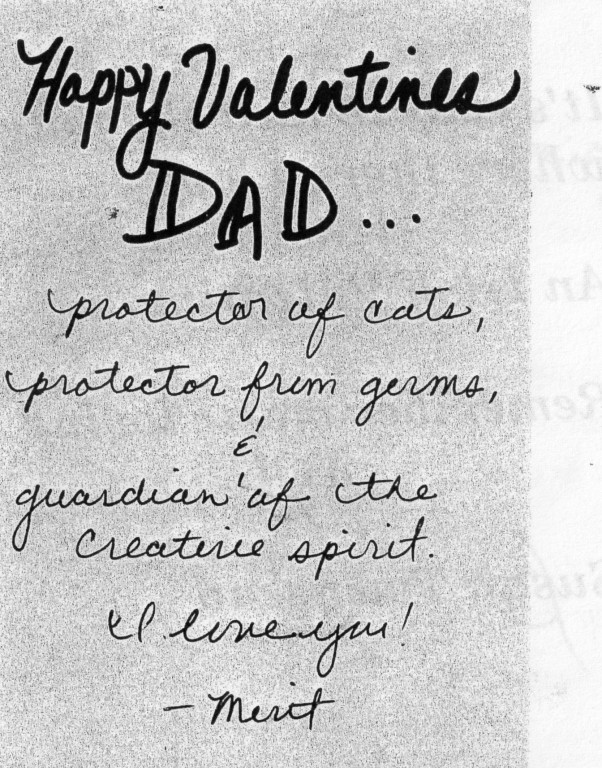 Happy Valentines
DAD...
protector of cats,
protector from germs,
&
guardian of the
creative spirit.
I love you!
- Merit